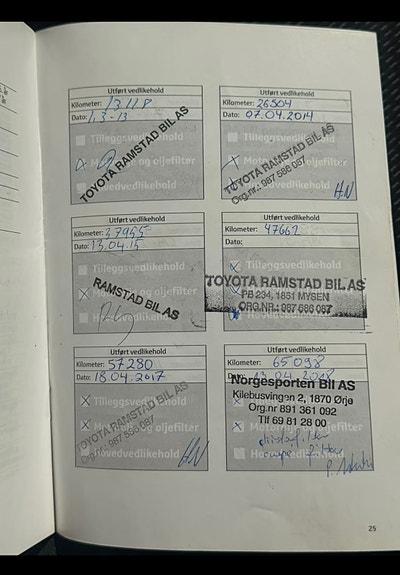 Utført vedlikehold
Kilometer: 13118
Dato: 1.3-13
Tilleggsvedlikehold
Motorolje og oljefilter
Hovedvedlikehold
TOYOTA RAMSTAD BIL AS
Utført vedlikehold
Kilometer: 26504
Dato: 07.04.2014
Tilleggsvedlikehold
Motorolje og oljefilter
Hovedvedlikehold
TOYOTA RAMSTAD BIL AS
Org.nr.: 987 586 087
HN
Utført vedlikehold
Kilometer: 37955
Dato: 13.04.15
Tilleggsvedlikehold
Motorolje og oljefilter
Hovedvedlikehold
RAMSTAD BIL AS
Utført vedlikehold
Kilometer: 47662
Dato:
TOYOTA RAMSTAD BIL AS
PB 234, 1851 MYSEN
ORG.NR.: 987 586 087
Utført vedlikehold
Kilometer: 57280
Dato: 18.04.2017
Tilleggsvedlikehold
Motorolje og oljefilter
Hovedvedlikehold
TOYOTA RAMSTAD BIL AS
Org.nr.: 987 586 087
HN
Utført vedlikehold
Kilometer: 65098
Dato: 13.04.2018
Norgesporten Bil AS
Kilebusvingen 2, 1870 Ørje
Org.nr 891 361 092
Tlf 69 81 28 00
Motorolje og oljefilter
Hovedvedlikehold
25